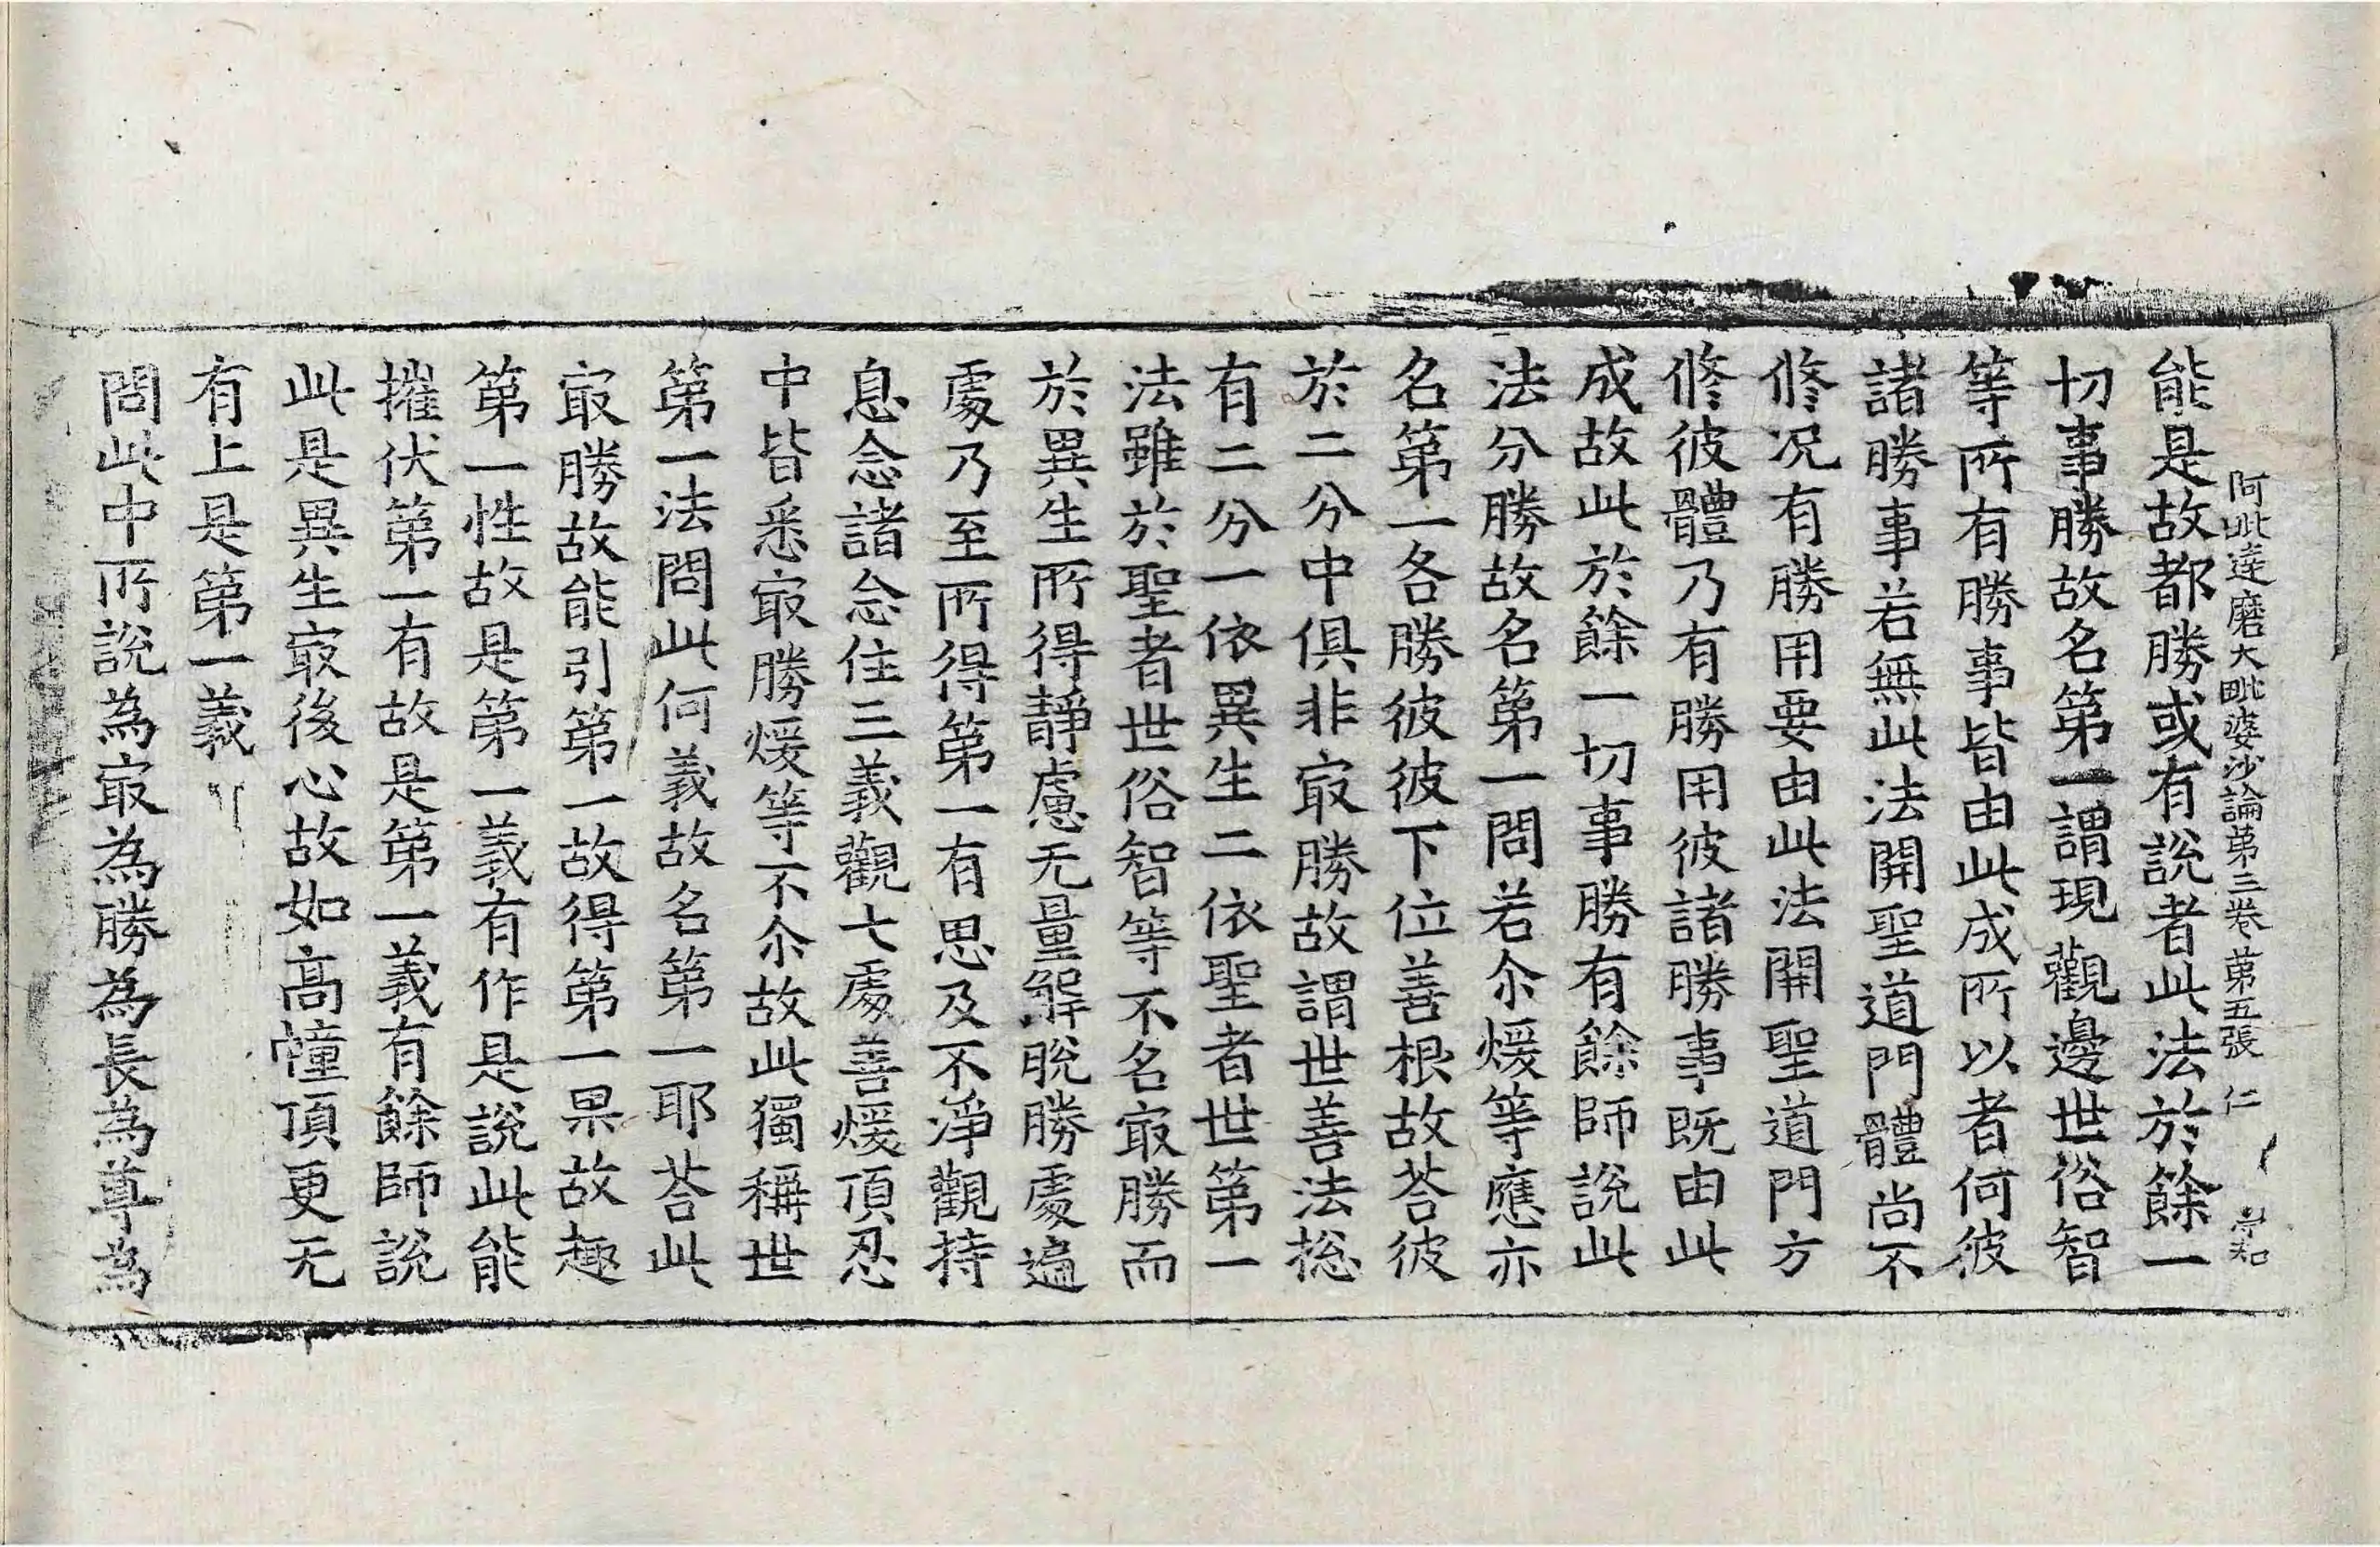 阿毗達磨大毗婆沙論第三卷 第五張 仁
能是故都勝或有說者此法於餘一
切事勝故名第一謂現觀邊世俗智
等所有勝事皆由此成所以者何彼
諸勝事若無此法開聖道門體尚不
修況有勝用要由此法開聖道門方
修彼體乃有勝用彼諸勝事既由此
成故此於餘一切事勝有餘師說此
法分勝故名第一問若尒煖等應亦
名第一各勝彼彼下位善根故荅彼
於二分中俱非㝡勝故謂世善法捴
有二分一依異生二依聖者世第一
法雖於聖者世俗智等不名㝡勝而
於異生所得靜慮无量解脫勝處遍
處乃至所得第一有思及不淨觀持
息念諸念住三義觀七處善煖頂忍
中皆悉㝡勝煖等不尒故此獨稱世
第一法問此何義故名第一耶荅此
㝡勝故能引第一故得第一果故趣
第一性故是第一義有作是說此能
摧伏第一有故是第一義有餘師說
此是異生㝡後心故如高幢頂更无
有上是第一義
問此中所說為㝡為勝為長為尊為